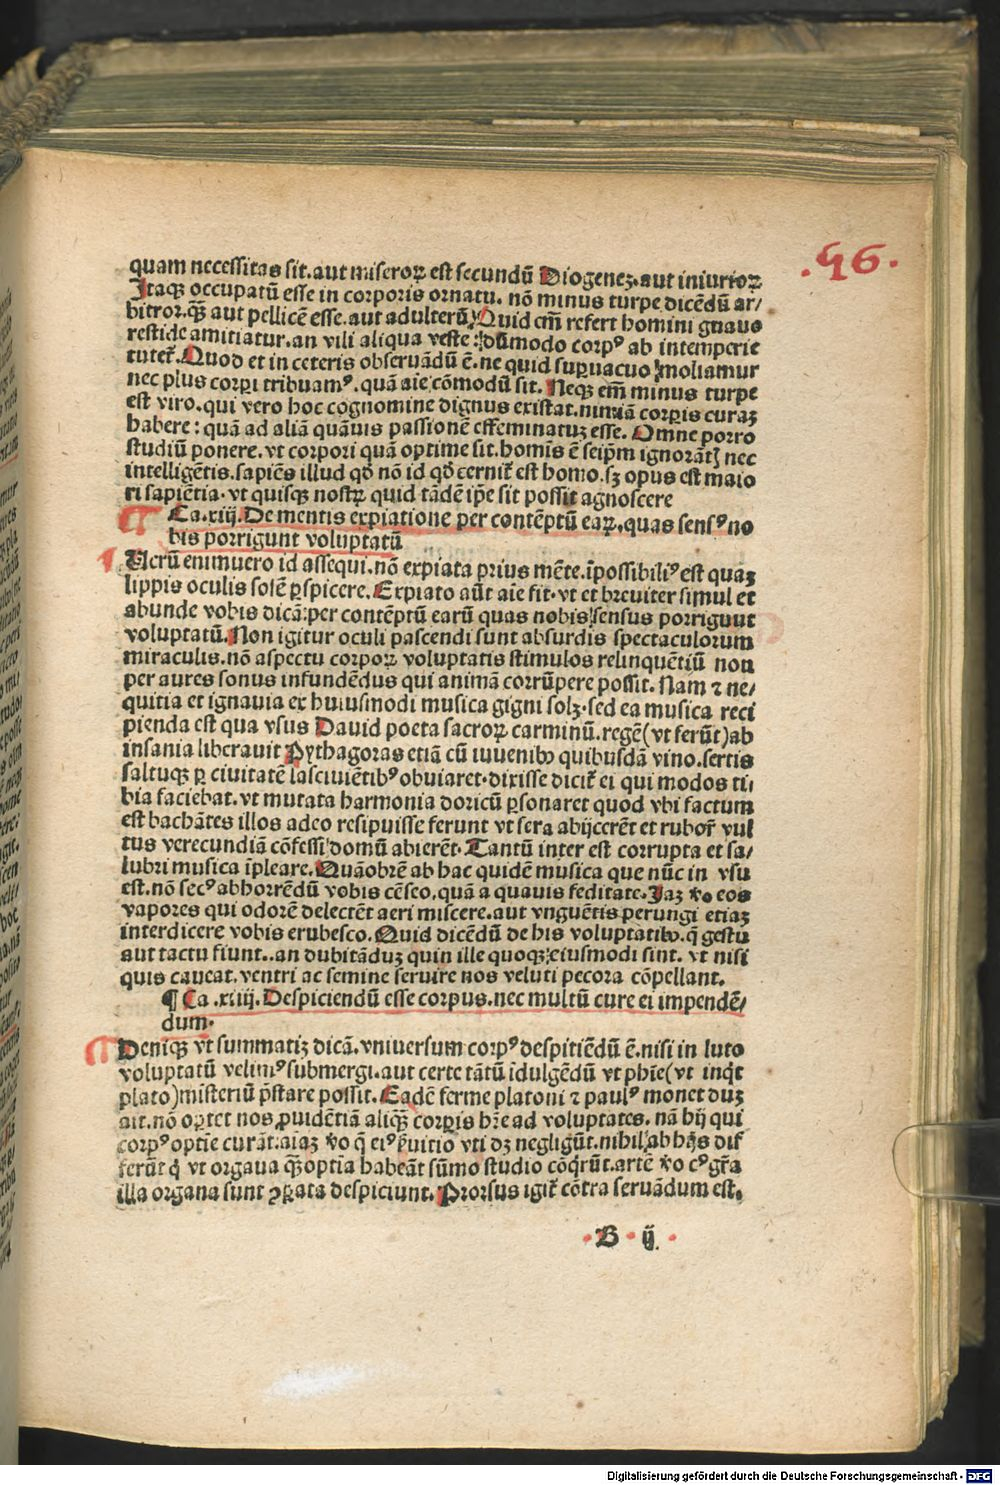 .56.
quam necessitas sit.aut miseroꝝ est secundū Diogenez.aut iniurioꝝ
Itaqꝫ occupatū esse in corporis ornatu. nō minus turpe dicēdū ar/
bitror.qꝫ̄ aut pellicē esse.aut adulterū. Quid em̄ refert homini gnauo
restide amitiatur.an vili aliqua veste: dūmodo corpꝰ ab intemperie
tutet̄. Quod et in ceteris obseruādū ē.ne quid supuacuo moliamur
nec plus corpi tribuamꝰ.quā aie cōmodū sit. Neqꝫ em̄ minus turpe
est viro.qui vero hoc cognomine dignus existat.nimiā corpis curaꝫ
habere: quā ad aliā quāuis passionē effeminatuꝫ esse. Omne porro
studiū ponere.vt corpori quā optime sit.homīs ē seipm̄ ignorātꝭ nec
intelligētis.sapiēs illud qd̄ nō id qd̄ cernit̄ est homo.sꝫ opus est maio
ri sapiētia.vt quisqꝫ nostꝝ quid tādē ip̄e sit possit agnoscere
¶ Ca.xiij.De mentis expiatione per contēptū eaꝝ.quas sensꝰ no
bis porrigunt voluptatū
Verū enimuero id assequi.nō expiata prius mēte.īpossibiliꝰ est quaꝫ
lippis oculis solē ꝑspicere. Expiato aūt aie fit.vt et breuiter simul et
abunde vobis dicā:per contēptū earū quas nobis sensus porrigunt
voluptatū. Non igitur oculi pascendi sunt absurdis spectaculorum
miraculis.nō aspectu corpoꝝ voluptatis stimulos relinquētiū non
per aures sonus infundēdus qui animā corrūpere possit. Nam ⁊ ne/
quitia et ignauia ex huiusmodi musica gigni solꝫ.sed ea musica reci
pienda est qua vsus Dauid poeta sacroꝝ carminū.regē(vt ferūt)ab
insania liberauit Pythagoras etiā cū iuuenibꝰ quibusdā vino.sertis
saltuqꝫ ꝑ ciuitatē lasciuiētibꝰ obuiaret.dixisse dicit̄ ei qui modos ti/
bia faciebat.vt mutata harmonia doricū ꝑsonaret quod vbi factum
est bachātes illos adeo resipuisse ferunt vt serta abijcerēt et rubor̄ vul
tus verecundiā cōfessi domū abierēt. Tantū inter est corrupta et sa/
lubri musica īpleare. Quāobrē ab hac quidē musica que nūc in vsu
est.nō secꝰ abhorrēdū vobis cēseo.quā a quauis feditate. Iaꝫ v̄o eos
vapores qui odorē delectēt aeri miscere.aut vnguētis perungi etiaꝫ
interdicere vobis erubesco. Quid dicēdū de his voluptatibꝰ.q̄ gestu
aut tactu fiunt..an dubitāduꝫ quin ille quoqꝫ eiusmodi sint. vt nisi
quis caueat.ventri ac semine seruire nos veluti pecora cōpellant.
¶ Ca.xiiij.Despiciendū esse corpus.nec multū cure ei impendē/
dum.
Deniqꝫ vt summatiꝫ dicā.vniuersum corpꝰ despitiēdū ē.nisi in luto
voluptatū velimꝰ submergi.aut certe tātū īdulgēdū vt phīe(vt inq̄t
plato)misteriū p̄stare possit. Eadē ferme platoni ⁊ paulꝰ monet duꝫ
ait.nō oꝑtet nos ꝓuidētiā aliqꝫ̄ corꝑis hr̄e ad voluptates. nā hij qui
corpꝰ optīe curāt.aiaꝫ v̄o q̄ eiꝰ ẜuitio vti dꝫ negligūt.nihil ab hijs dif
ferūt q̄ vt organa qꝫ̄ optīa habeāt sūmo studio cōq̄rūt.artē v̄o cꝰ gr̄a
illa organa sunt ꝓꝑata despiciunt. Prorsus igit̄ cōtra seruādum est.
.B.ij.
Digitalisierung gefördert durch die Deutsche Forschungsgemeinschaft - DFG